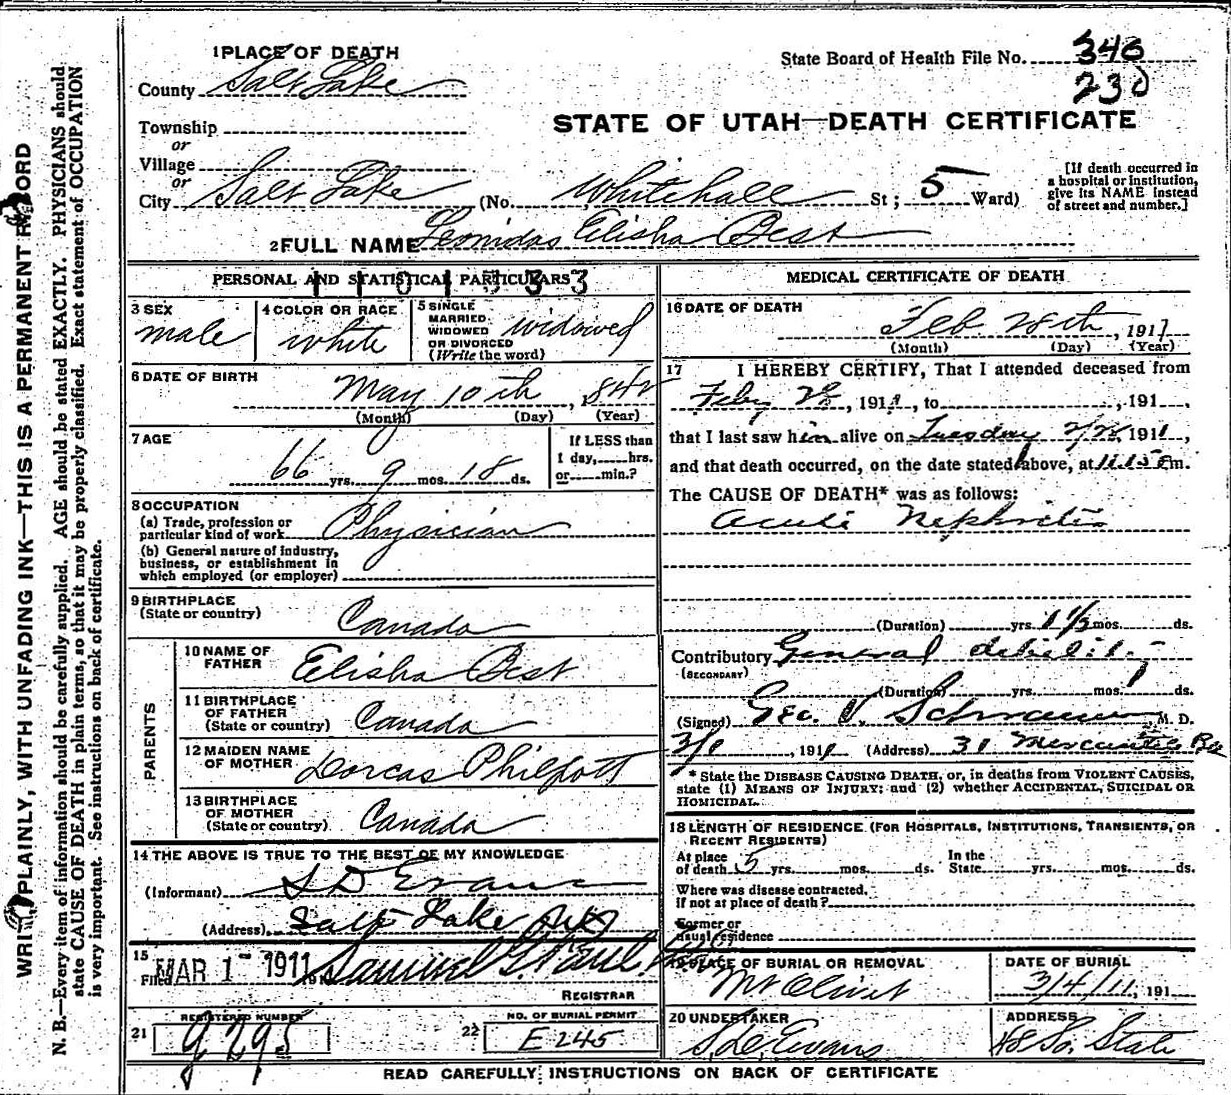 1 PLACE OF DEATH
County Salt Lake
Township
or
Village
or
City Salt Lake (No. Whitehall St; 5 Ward)
State Board of Health File No. 346
230
STATE OF UTAH—DEATH CERTIFICATE
[If death occurred in
a hospital or institution,
give its NAME instead
of street and number.]
2 FULL NAME Leonidas Elisha Best
PERSONAL AND STATISTICAL PARTICULARS
3 SEX
male
4 COLOR OR RACE
white
5 SINGLE
MARRIED
WIDOWED
OR DIVORCED
(Write the word)
widowed
6 DATE OF BIRTH
May 10th, 842
(Month) (Day) (Year)
7 AGE
66 yrs. 9 mos. 18 ds.
If LESS than
1 day, hrs.
or min.?
8 OCCUPATION
(a) Trade, profession or
particular kind of work Physician
(b) General nature of industry,
business, or establishment in
which employed (or employer)
9 BIRTHPLACE
(State or country)
Canada
PARENTS
10 NAME OF
FATHER
Elisha Best
11 BIRTHPLACE
OF FATHER
(State or country)
Canada
12 MAIDEN NAME
OF MOTHER
Dorcas Philpott
13 BIRTHPLACE
OF MOTHER
(State or country)
Canada
14 THE ABOVE IS TRUE TO THE BEST OF MY KNOWLEDGE
(Informant) S D Evans
(Address) Salt Lake
15
Filed MAR 1 - 1911 Samuel G. Paul
REGISTRAR
21 REGISTERED NUMBER
g 295
22 NO. OF BURIAL PERMIT
E 245
MEDICAL CERTIFICATE OF DEATH
16 DATE OF DEATH
Feb 28th, 1911
(Month) (Day) (Year)
17 I HEREBY CERTIFY, That I attended deceased from
Feby, 1911, to , 191 ,
that I last saw him alive on Tuesday 1911,
and that death occurred, on the date stated above, at 11.15 m.
The CAUSE OF DEATH* was as follows:
acute Nephritis
(Duration) yrs. 1 1/2 mos. ds.
Contributory General debility
(SECONDARY)
(Duration) yrs. mos. ds.
(Signed) Geo. V. Schramm M. D.
3/1, 1911 (Address) 31 Mercantile
* State the DISEASE CAUSING DEATH, or, in deaths from VIOLENT CAUSES,
state (1) MEANS OF INJURY; and (2) whether ACCIDENTAL, SUICIDAL OR
HOMICIDAL.
18 LENGTH OF RESIDENCE (FOR HOSPITALS, INSTITUTIONS, TRANSIENTS, OR
RECENT RESIDENTS)
At place
of death 5 yrs. mos. ds.
In the
State yrs. mos. ds.
Where was disease contracted,
if not at place of death?
Former or
usual residence
19 PLACE OF BURIAL OR REMOVAL
Mt Olivet
DATE OF BURIAL
3/4/11, 191
20 UNDERTAKER
S. D. Evans
ADDRESS
48 So. State
READ CAREFULLY INSTRUCTIONS ON BACK OF CERTIFICATE
WRITE PLAINLY, WITH UNFADING INK—THIS IS A PERMANENT RECORD
N. B.—Every item of information should be carefully supplied. AGE should be stated EXACTLY. PHYSICIANS should
state CAUSE OF DEATH in plain terms, so that it may be properly classified. Exact statement of OCCUPATION
is very important. See instructions on back of certificate.